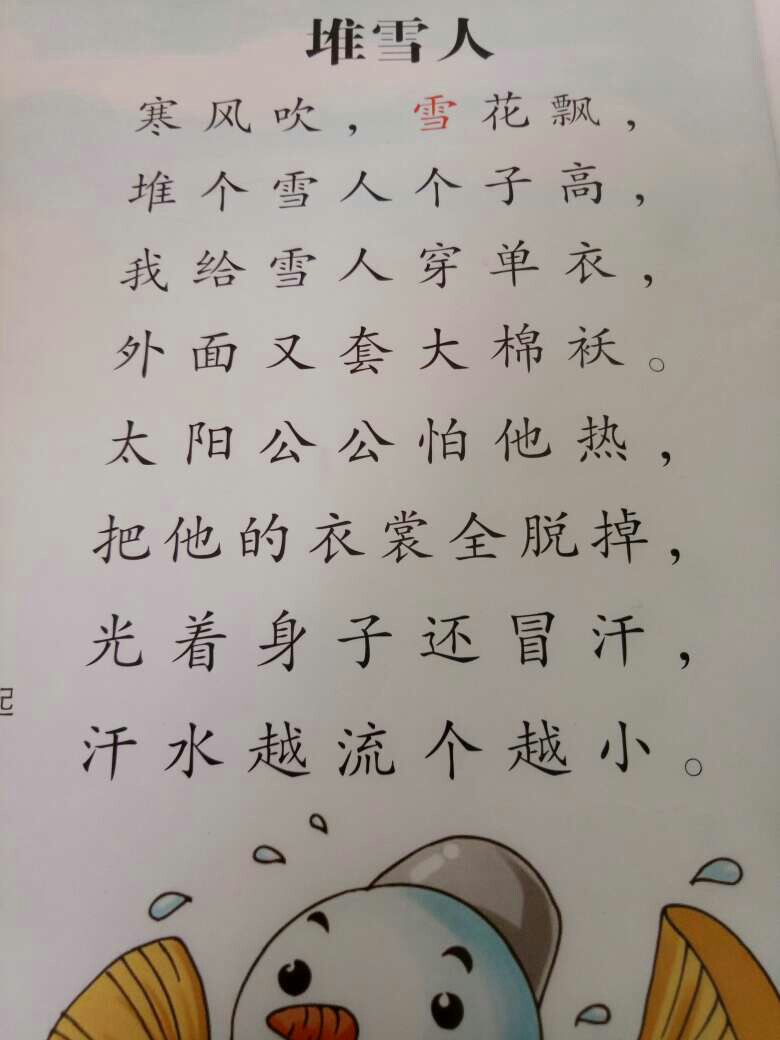 堆雪人
寒风吹，雪花飘，
堆个雪人个子高，
我给雪人穿单衣，
外面又套大棉袄。
太阳公公怕他热，
把他的衣裳全脱掉，
光着身子还冒汗，
起
汗水越流个越小。